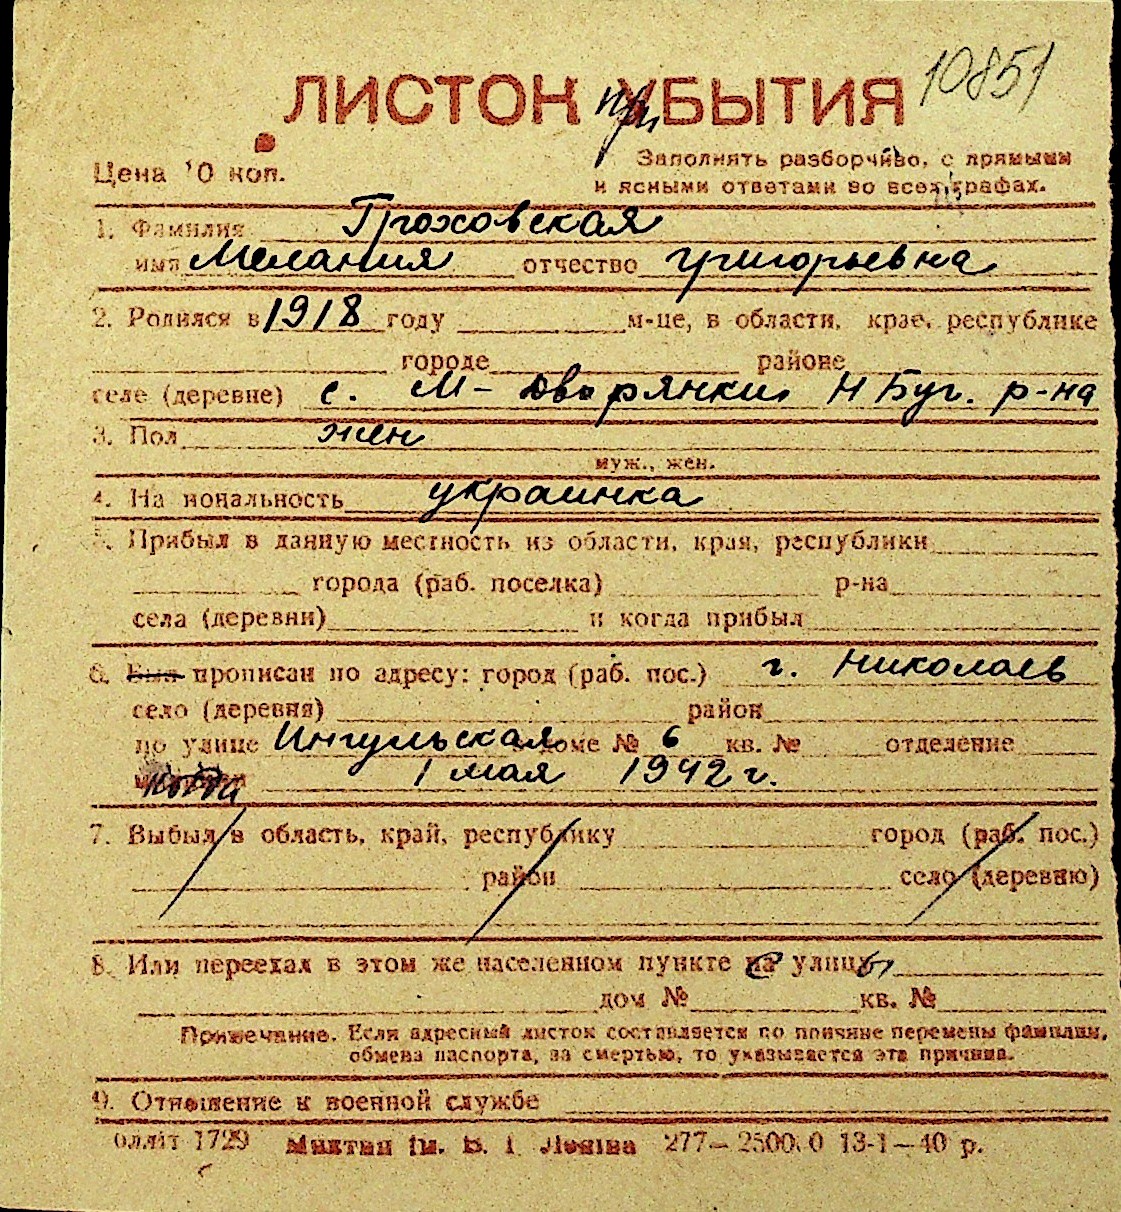 10851
ЛИСТОК при УБЫТИЯ
Цена 10 коп.
Заполнять разборчиво, с прямыми
и ясными ответами во всех графах.
1. Фамилия Гроховская
имя Мелания отчество Григорьевна
2. Родился в 1918 году м-це, в области, крае, республике
городе районе
селе (деревне) с. М-Дворянки Н Буг. р-на
3. Пол жен
муж., жен.
4. Национальность украинка
5. Прибыл в данную местность из области, края, республики
города (раб. поселка) р-на
села (деревни) и когда прибыл
6. Был прописан по адресу: город (раб. пос.) г. Николаев
село (деревня) район
по улице Ингульская доме № 6 кв. № отделение
когда 1 мая 1942 г.
7. Выбыл в область, край, республику город (раб. пос.)
район село (деревню)
8. Или переехал в этом же населенном пункте с улицы
дом № кв. №
Примечание. Если адресный листок составляется по причине перемены фамилии,
обмена паспорта, за смертью, то указывается эта причина.
9. Отношение к военной службе
1729 ім. В. І. Леніна 277— 13-1—40 р.